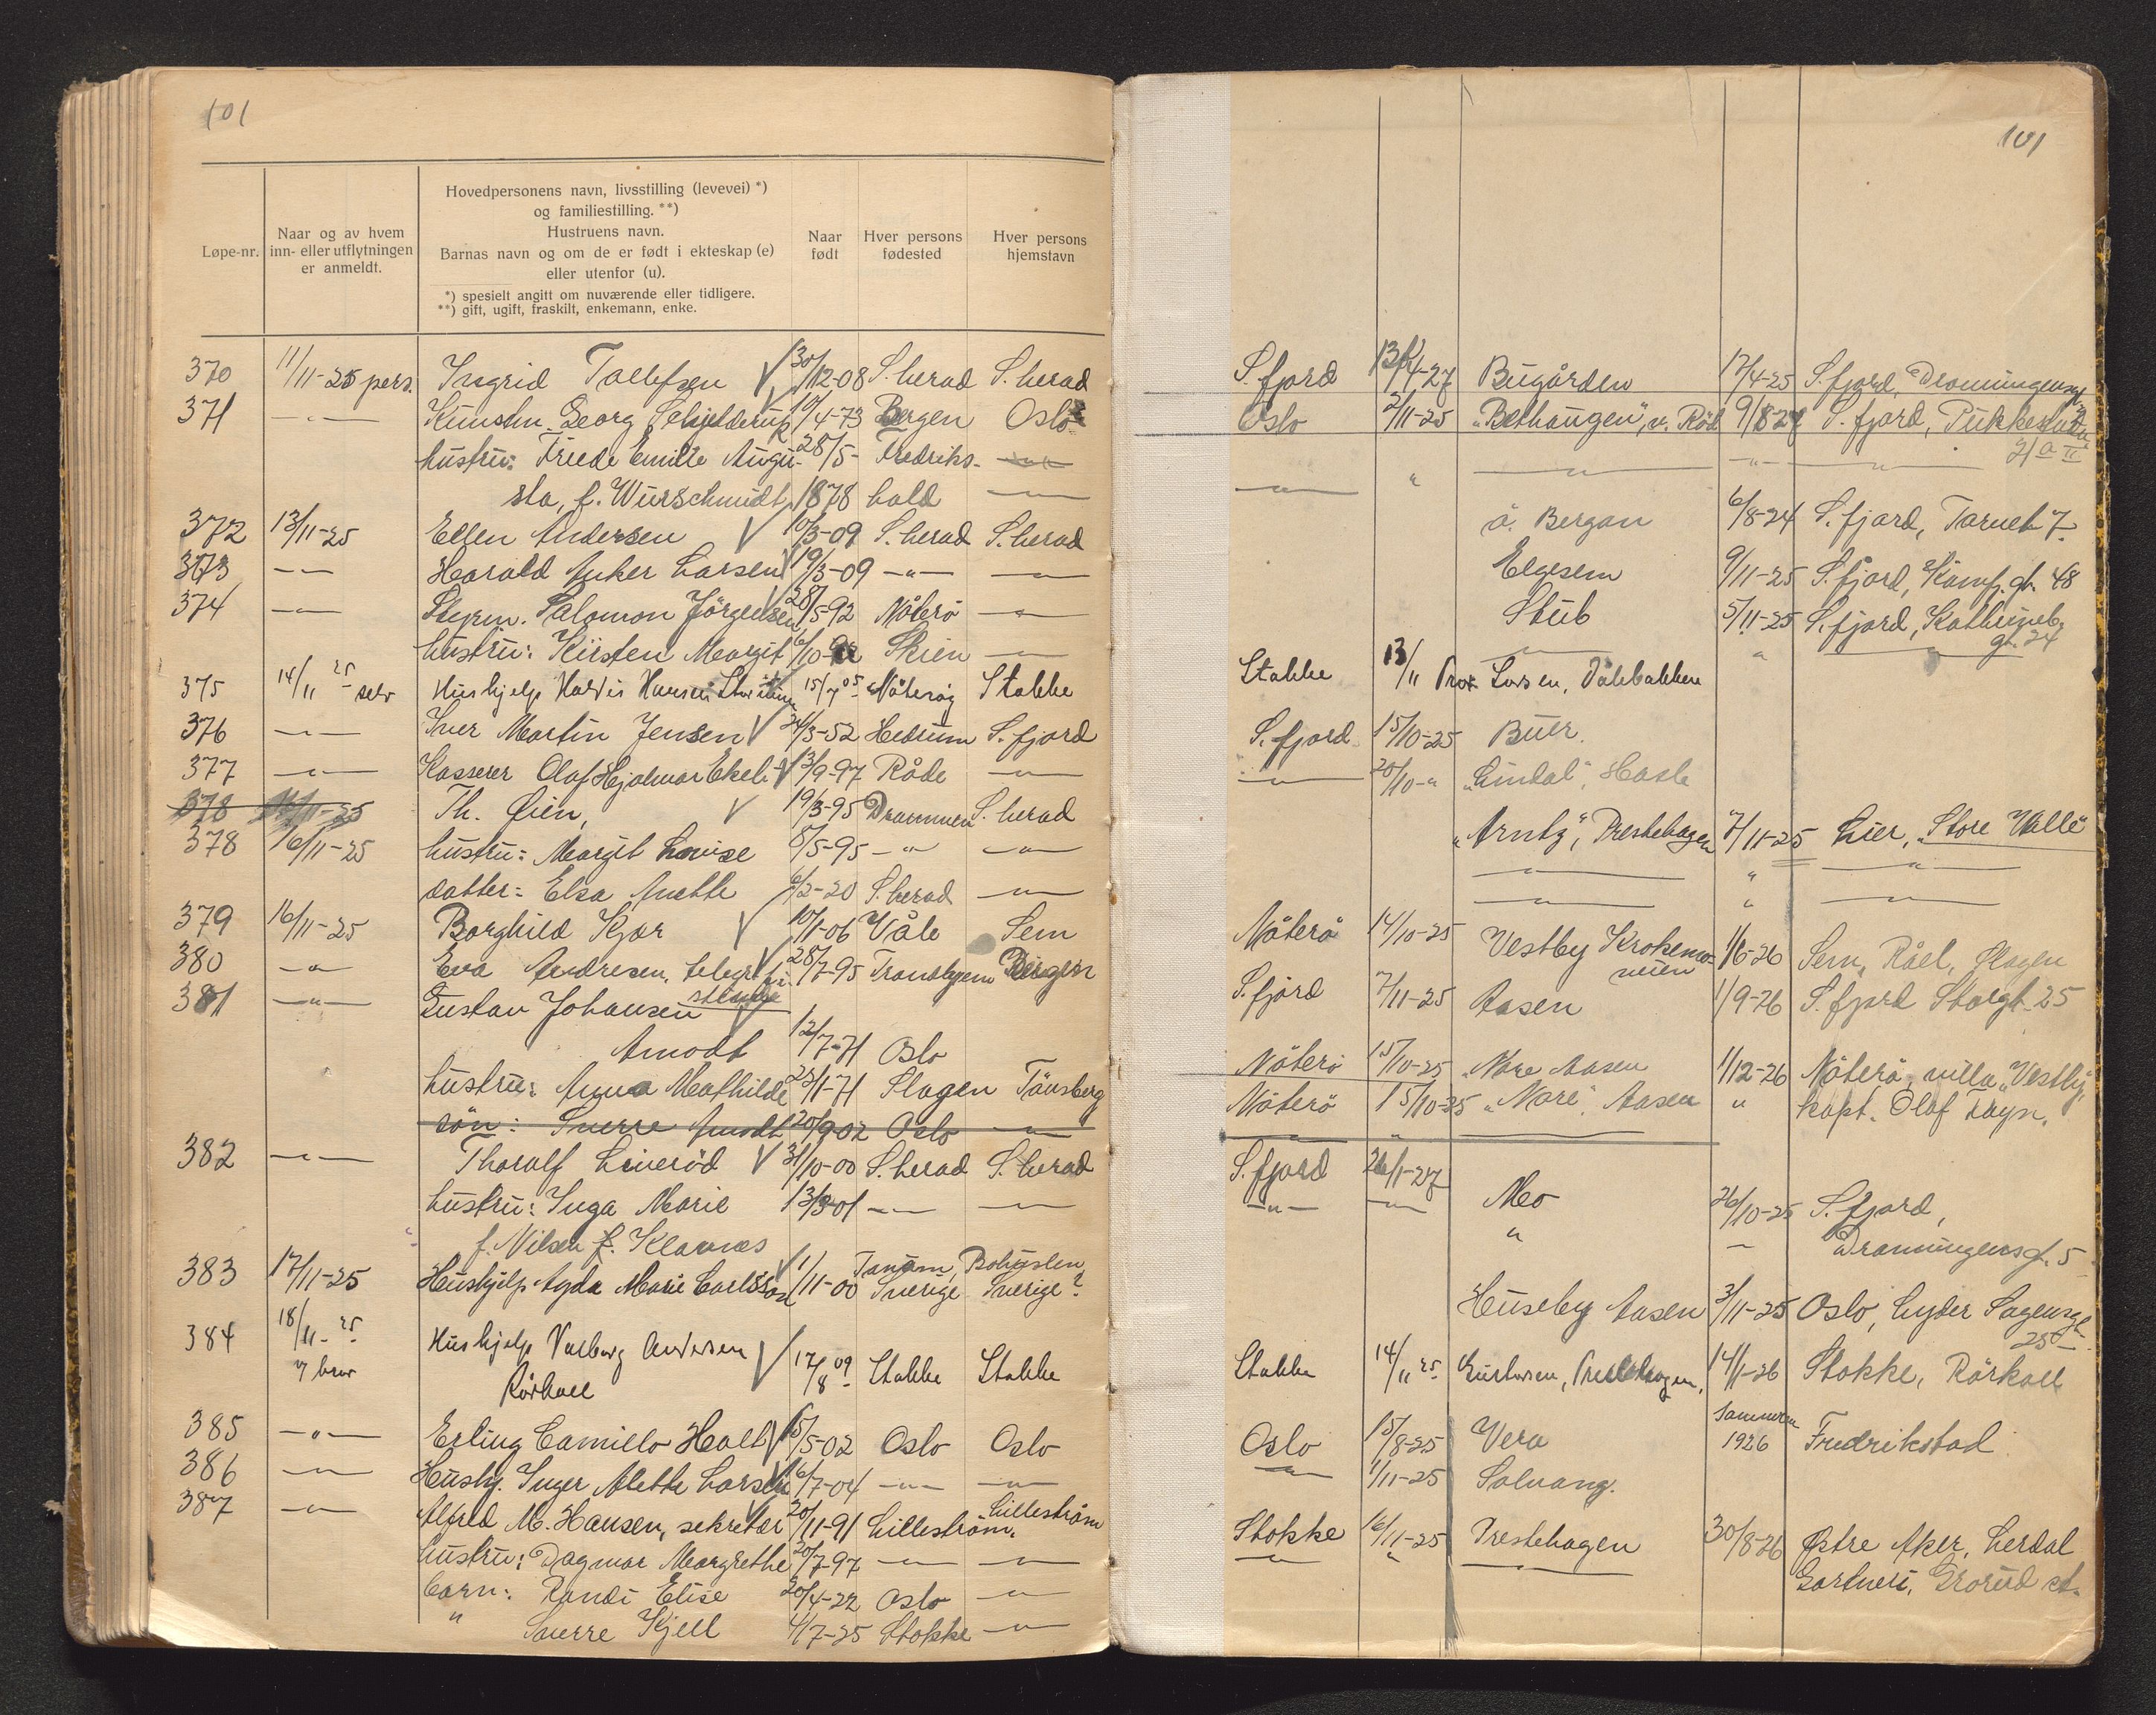 101
Løpe-nr.
Naar og av hvem
inn- eller utflytningen
er anmeldt.
Hovedpersonens navn, livsstilling (levevei) *)
og familiestilling. **)
Hustruens navn.
Barnas navn og om de er født i ekteskap (e)
eller utenfor (u).
*) spesielt angitt om nuværende eller tidligere.
**) gift, ugift, fraskilt, enkemann, enke.
Naar
født
Hver persons
fødested
Hver persons
hjemstavn
370 11/11-25 pers. Ingrid Tollefsen 30/12-08 S.herad S.herad
371 -"- Kunstm. Georg Schjelderup 10/4-73 Bergen Oslo
hustru: Friede Emilie Augu- 28/5- Fredriks- -"-
sta, f. Würschmidt, 1878 hald -"-
372 13/11-25 Ellen Andersen 10/3-09 S.herad S.herad
373 -"- Harald Anker Larsen 19/3-09 -"- -"-
374 -"- Styrm. Salomon Jörgensen 28/5-92 Nöterö -"-
hustru: Kirsten Margit 6/10- Skien -"-
375 14/11 25 selv Hushjelp Haldis Hansen 15/7 05 Nöteröy Stokke
376 -"- Iver Martin Jensen 24/3-52 Hedrum S.fjord
377 -"- Kasserer Olaf Hjalmar Ekeli 13/9-97 Råde -"-
378 11-25 Th. Øien, 19/3-95 Drammen S.herad
378 16/11-25 hustru: Margit Lovise 8/5-95 -"- -"-
datter: Elsa Anette 6/2-20 S.herad -"-
379 16/11-25 Borghild Kjær 10/1-06 Våle Sem
380 -"- Eva Andresen, telegrafi- 28/7-95 Tranbyem Bergen
381 -"- Gustav Johansen
Amodt 12/7-71 Oslo
hustru: Anna Mathilde 23/11-71 Slagen Tönsberg
sön: Sverre Amodt 20/9-02 Oslo -"-
382 -"- Thoralf Liveröd 31/10-00 S.herad S.herad
hustru: Inga Marie 13/3-01 -"- -"-
f. Nilsen f. Klavnes
383 17/11-25 Hushjelp Agda Marie Carlsson 1/11-00 Tanum, Bohuslen,
Sverige Sverige?
384 18/11-25 Hushjelp Valborg Andersen 17/8 09 Stokke Stokke
Rörkoll
385 -"- Erling Camillo Holt 15/5-02 Oslo Oslo
386 -"- Hushj. Inger Alette Larsen 16/7-04 -"- -"-
387 -"- Alfred M. Hansen, sekretær 20/11-91 Lilleström. Lilleström
hustru: Dagmar Margrethe 20/7-97 -"- -"-
barn: Randi Elise 20/4-22 Oslo -"-
" Sverre Kjell 4/7-25 Stokke -"-
101
S.fjord 13/4-27 Bugården 17/4-25 S.fjord, Dronningensgt.
Oslo 2/11-25 "Bethaugen", v. Röd 9/8-24 S.fjord, Pukkestad
-"- " -"- -"- -"- 21 a II
ö. Bergan 6/8-24 S.fjord, Tarnet 7.
Elgesem 9/11-25 S.fjord, Kamf.gt. 48
Stub 5/11-25 S.fjord, Kathrineb.
-"- " -"- gt. 24
Stokke 13/11 Larsen,
S.fjord 15/10-25 Buer.
-"- 20/10-" "Lindal", Hasle
"Arntz", Prestehagen 7/11-25 Lier, "Store Valle"
-"- " -"-
-"- " -"-
Nöterö 14/10-25 Vestby Krokemo- 1/6-26 Sem, Råel, Slagen
veien
S.fjord 7/11-25 Aasen 1/9-26 S.fjord Storgt. 25
Nöterö 15/10-25 "Nore" Aasen 1/12-26 Nöterö, villa "Vestby",
Nöterö 15/10-25 "Nore", Aasen " kapt. Olaf Fayn.
-"- " -"-
S.fjord 26/1-27
-"- -"- Mo 26/10-25 S.fjord,
" - Dronningensgt. 5
Huseby Aasen 3/11-25 Oslo, Lyder Sagensgt.
25
Stokke 14/11 25 Gulliksen, Prestehagen, 14/1-26 Stokke, Rörkoll
Oslo 15/8-25 Vera Sommeren 1926 Fredrikstad
-"- 1/11-25 Solvang.
Stokke 16/11-25 Prestehagen 30/8-26 Østre Aker, Lerdal
-"- " -"- Gartneri, Grorud st.